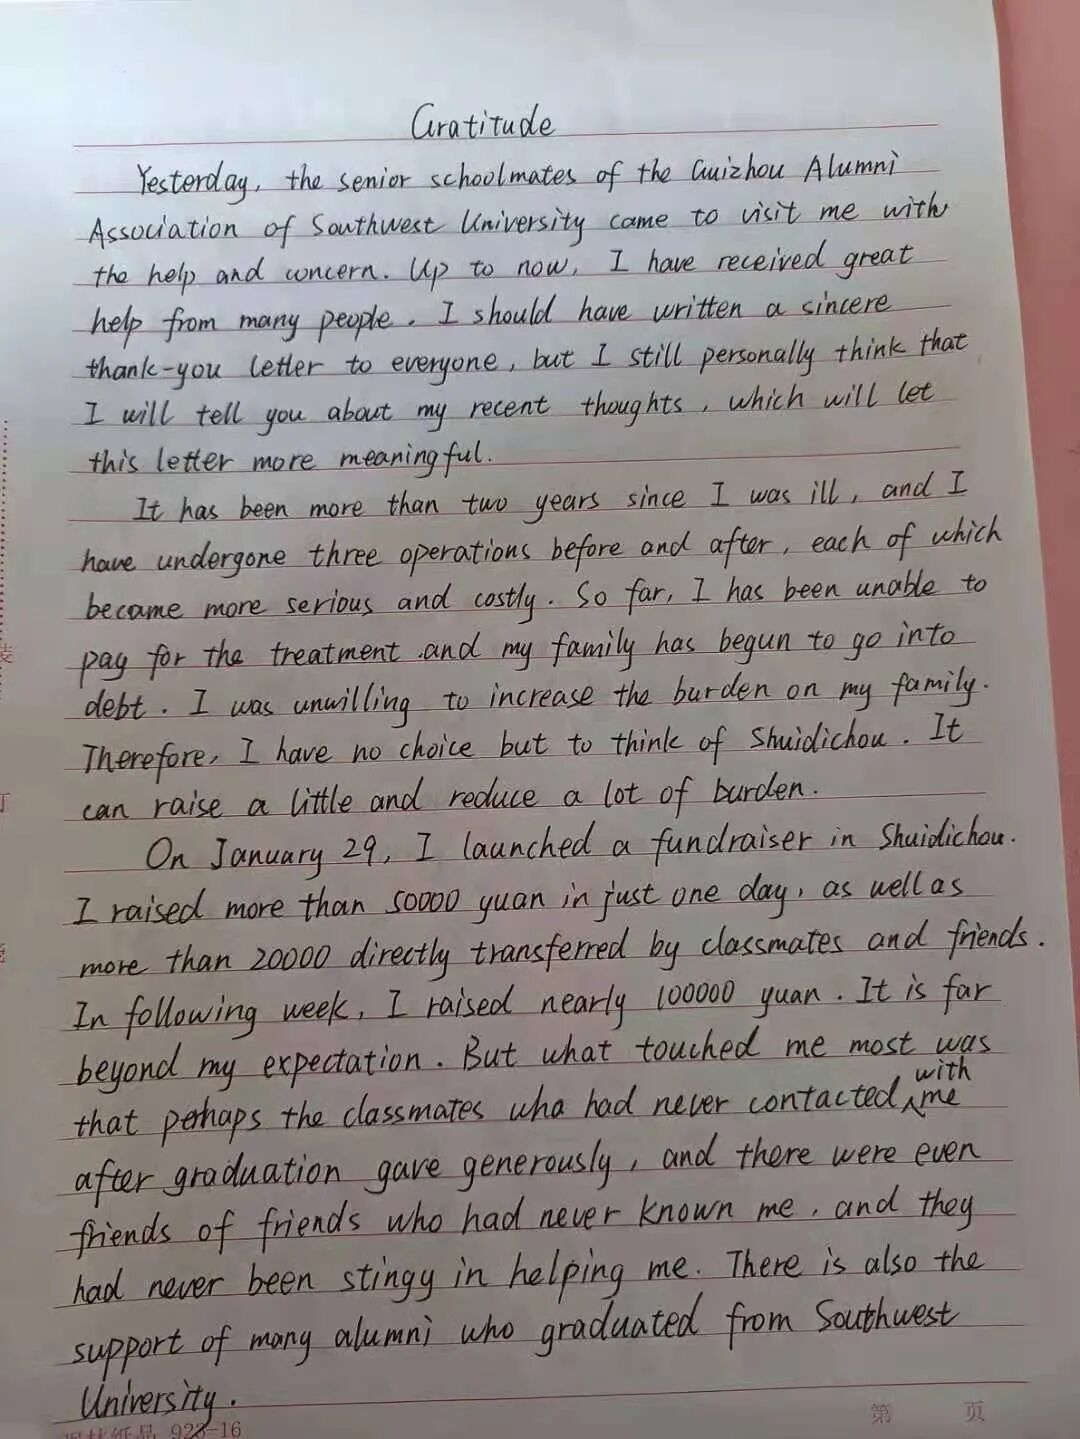 Gratitude
Yesterday, the senior schoolmates of the Guizhou Alumni
Association of Southwest University came to visit me with
the help and concern. Up to now, I have received great
help from many people. I should have written a sincere
thank-you letter to everyone, but I still personally think that
I will tell you about my recent thoughts, which will let
this letter more meaningful.
It has been more than two years since I was ill, and I
have undergone three operations before and after, each of which
became more serious and costly. So far, I has been unable to
pay for the treatment and my family has begun to go into
debt. I was unwilling to increase the burden on my family.
Therefore, I have no choice but to think of Shuidichou. It
can raise a little and reduce a lot of burden.
On January 29, I launched a fundraiser in Shuidichou.
I raised more than 50000 yuan in just one day, as well as
more than 20000 directly transferred by classmates and friends.
In following week, I raised nearly 100000 yuan. It is far
beyond my expectation. But what touched me most was
that perhaps the classmates who had never contacted with me
after graduation gave generously, and there were even
friends of friends who had never known me, and they
had never been stingy in helping me. There is also the
support of many alumni who graduated from Southwest
University.
923-16
第 页
装
订